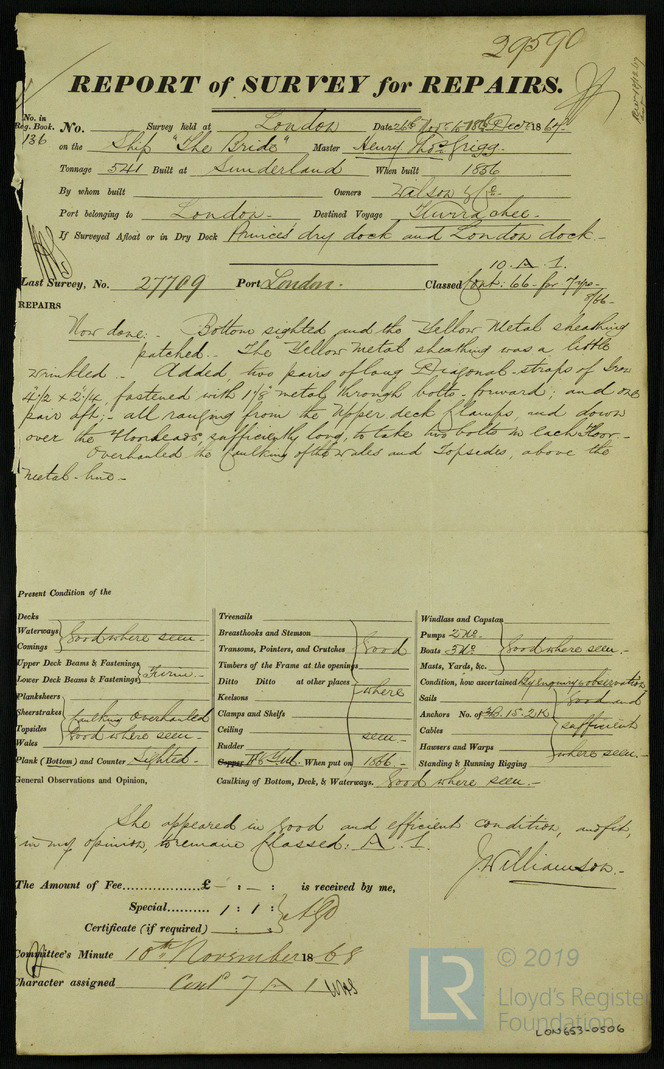 29590
REPORT of SURVEY for REPAIRS.
No. in
Reg. Book.
136
No. Survey held at London Date 26th Nov to 18th Decr 1867.
on the Ship "The Bride" Master Henry Thos. Grigg.
Tonnage 541 Built at Sunderland When built 1856
By whom built Owners Wilson & Co.
Port belonging to London. Destined Voyage Kurrachee.
If Surveyed Afloat or in Dry Dock Princes' dry dock and London dock.
10. A. 1.
Last Survey, No. 27709 Port London. Classed Cont: 66 - for 7 yrs -
8/66 -
REPAIRS
Now done: - Bottom sighted and the Yellow Metal sheathing
patched. - The Yellow Metal sheathing was a little
wrinkled - Added, two pairs of long Diagonal straps of Iron
4 1/2 x 2 1/4, fastened with 1 1/8 metal through bolts - forward; and one
pair aft; - all ranging from the Upper deck Clamps, and down
over the Floorheads, sufficiently long, to take two bolts in each Floor -
Overhauled the Caulking of the Wales and Topsides, above the
metal-line -
Present Condition of the
Decks
Waterways
Comings
Good where seen -
Upper Deck Beams & Fastenings
Lower Deck Beams & Fastenings
Firm -
Planksheers
Sheerstrakes
Topsides
Wales
Caulking Overhauled
Good where seen -
Plank (Bottom) and Counter Sighted -
Treenails
Breasthooks and Stemson
Transoms, Pointers, and Crutches
Timbers of the Frame at the openings
Ditto Ditto at other places
Keelsons
Clamps and Shelfs
Ceiling
Rudder
Good
where
seen -
Copper When put on 1866 -
Caulking of Bottom, Deck, & Waterways. Good where seen -
Windlass and Capstan
Pumps 2 No.
Boats 3 No
Masts, Yards, &c.
Good where seen -
Condition, how ascertained By enquiry & observation
Sails
Anchors No. of 3B. 1S. 2K
Cables
Hawsers and Warps
Standing & Running Rigging
Good and
sufficient
where seen -
General Observations and Opinion,
She appeared in good and efficient condition, and fit,
in my opinion, to remain Classed: A. 1.
J. Williamson. -
The Amount of Fee................£ - : - : is received by me,
Special.......... 1 : 1 :
Certificate (if required) : :
Committee's Minute 10th November 1868
Character assigned Contd 7 A 1
© 2019
LR
Lloyd's Register
Foundation
LON653-0506